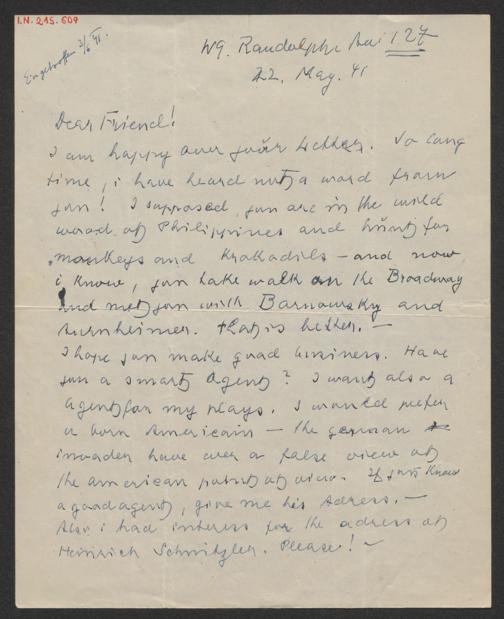 I.N. 215.609
Eingetroffen 2/6 41.
W9. Randolph Av. 127
22. May. 41
Dear Friend!
I am happy over your letter. So long
time, i have heard not a word from
you! I supposed, you are in the wild
wood of Philippines and hunt for
monkeys and krokadils - and now
i know, you take walk on the Broadway
and met you with Barnowsky and
Aurnheimer. That is better. -
I hope you make good business. Have
you a smart Agent? I want also a
agent for my plays. I would prefer
a born American - the german
invader have over a false view of
the american point of view. If you know
a good agent, give me his Adress. -
Also i had interess for the adress of
Heinrich Schnitzler. Please! -